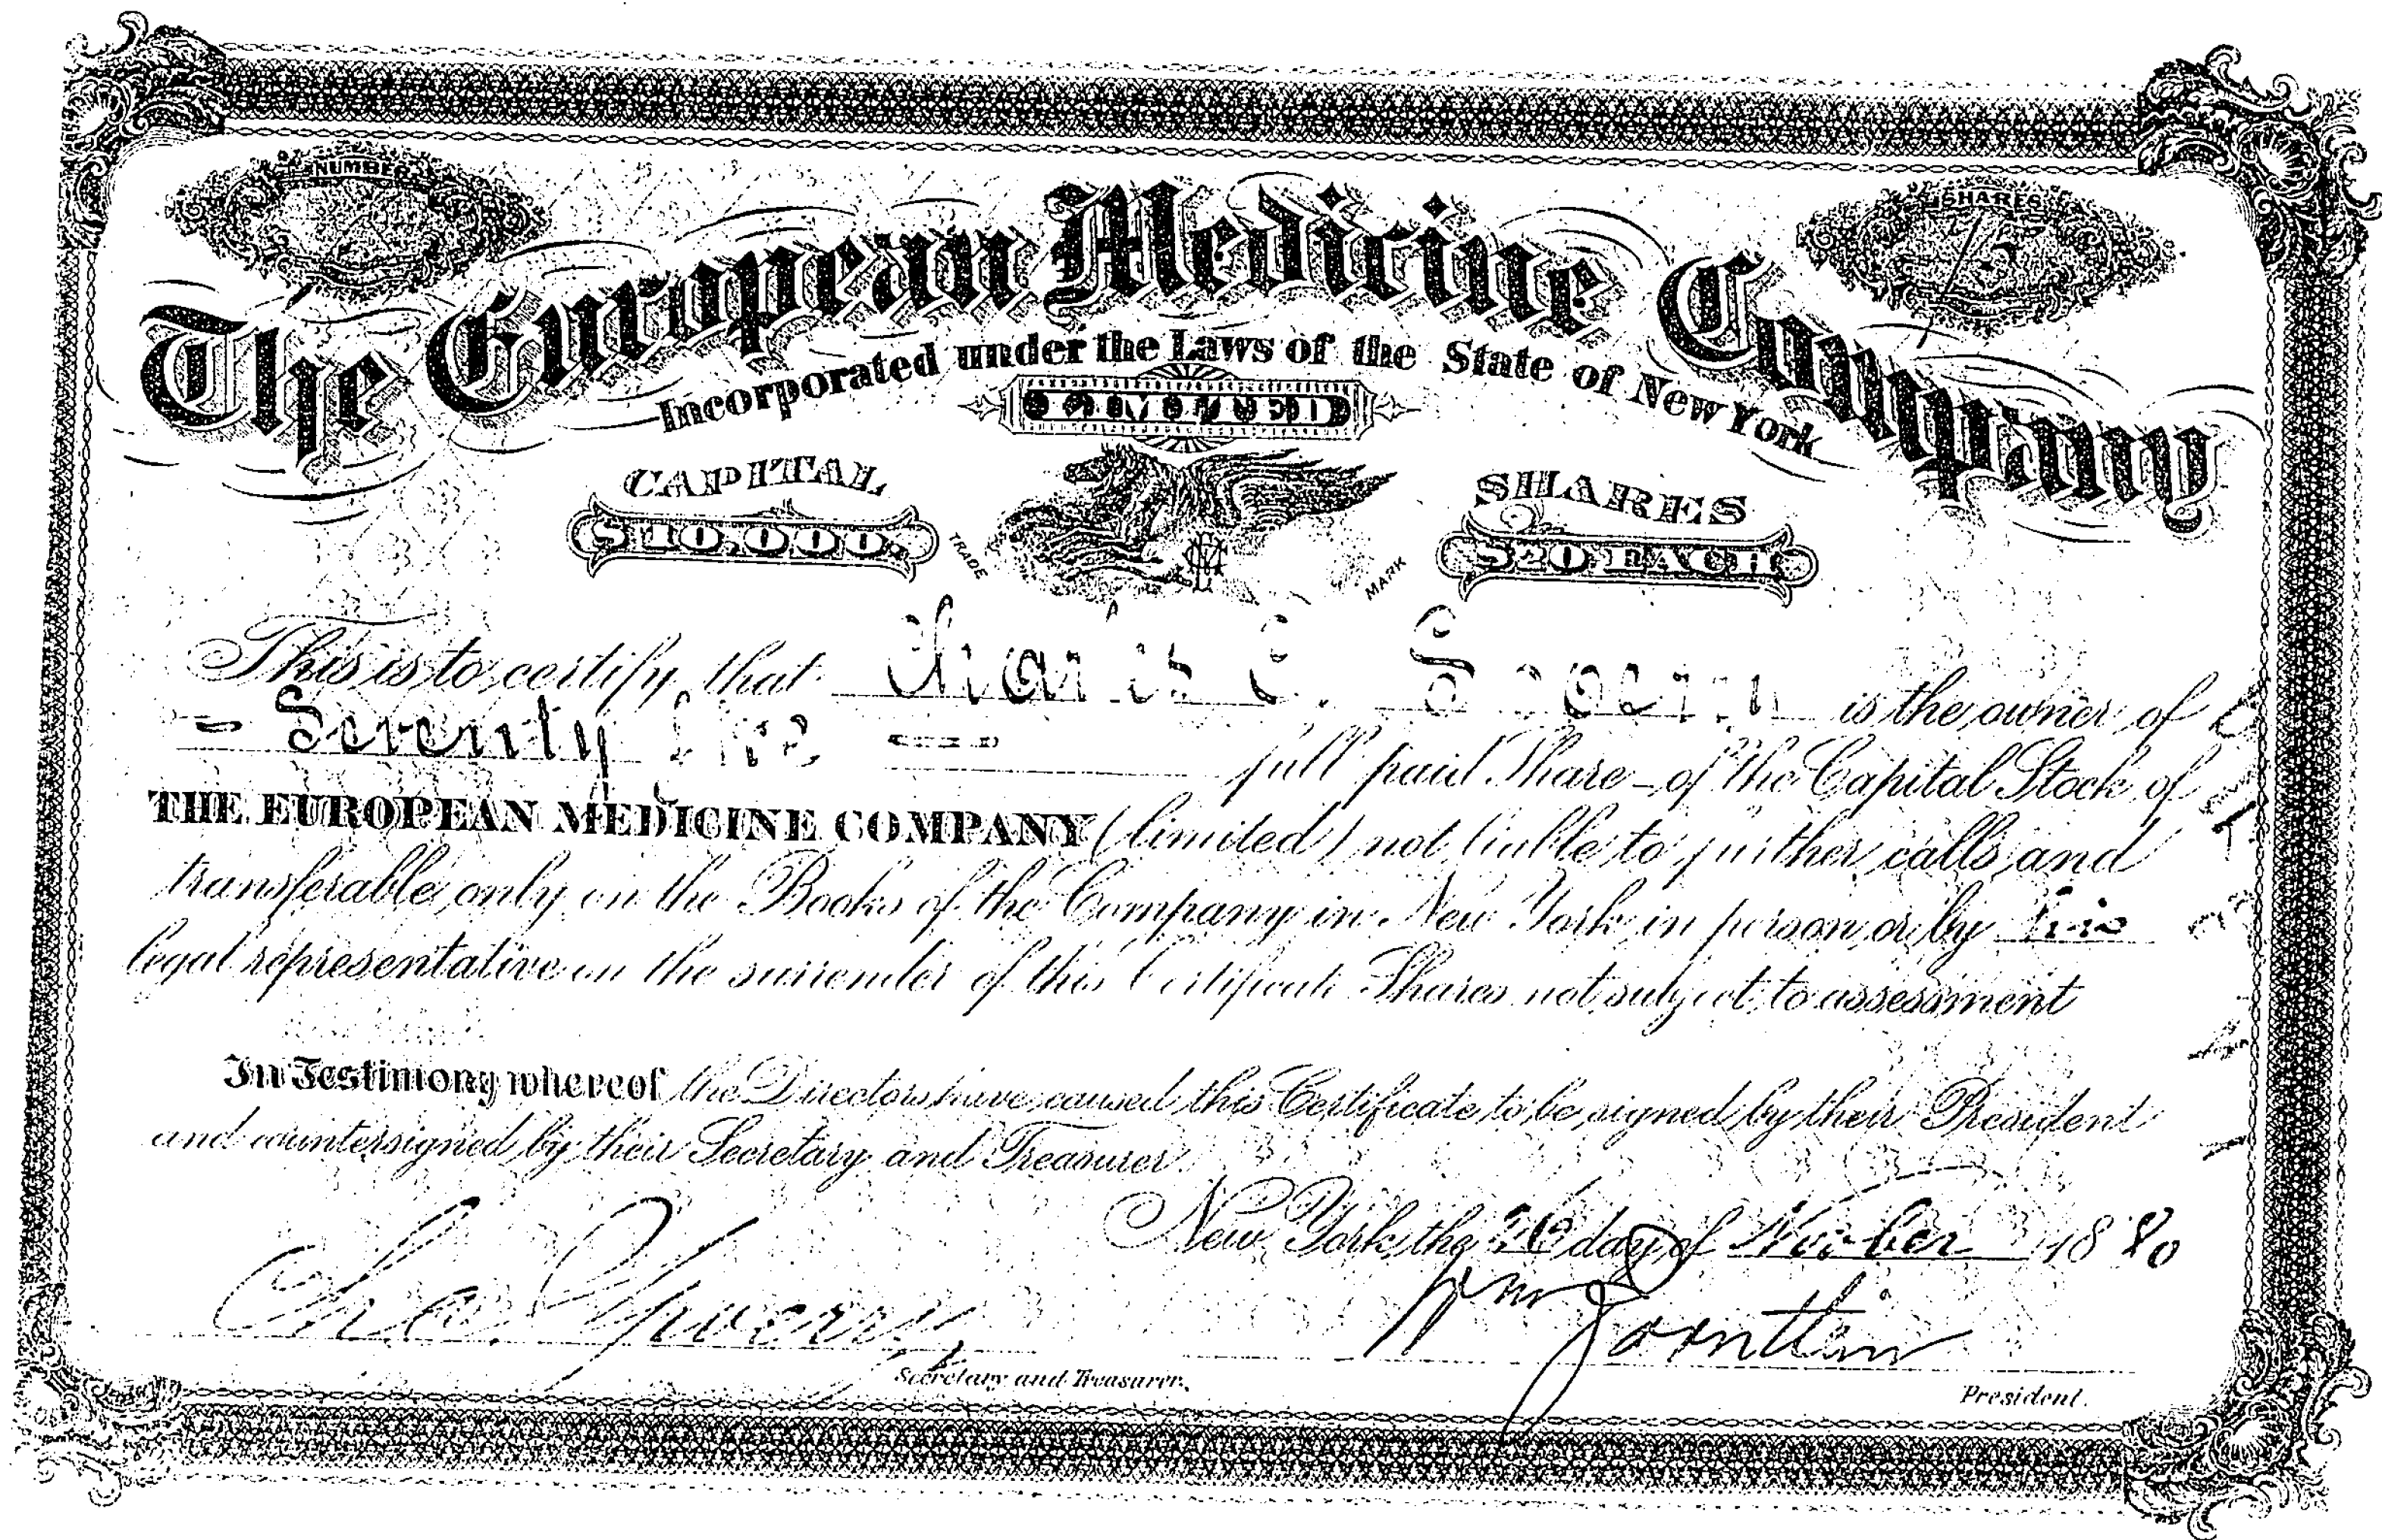 NUMBER
SHARES
75
The European Medicine Company
Incorporated under the Laws of the State of New York
LIMITED
CAPITAL
$10,000.
TRADE MARK
SHARES
$20 EACH
This is to certify that Charles C. is the owner of
Seventy five full paid Share of the Capital Stock of
THE EUROPEAN MEDICINE COMPANY (limited) not liable to further calls and
transferable only on the Books of the Company in New York in person or by his
legal representative on the surrender of this Certificate Shares not subject to assessment
In Testimony whereof the Directors have caused this Certificate to be signed by their President
and countersigned by their Secretary and Treasurer.
New York, the 26 day of 1880
Secretary and Treasurer.
President.